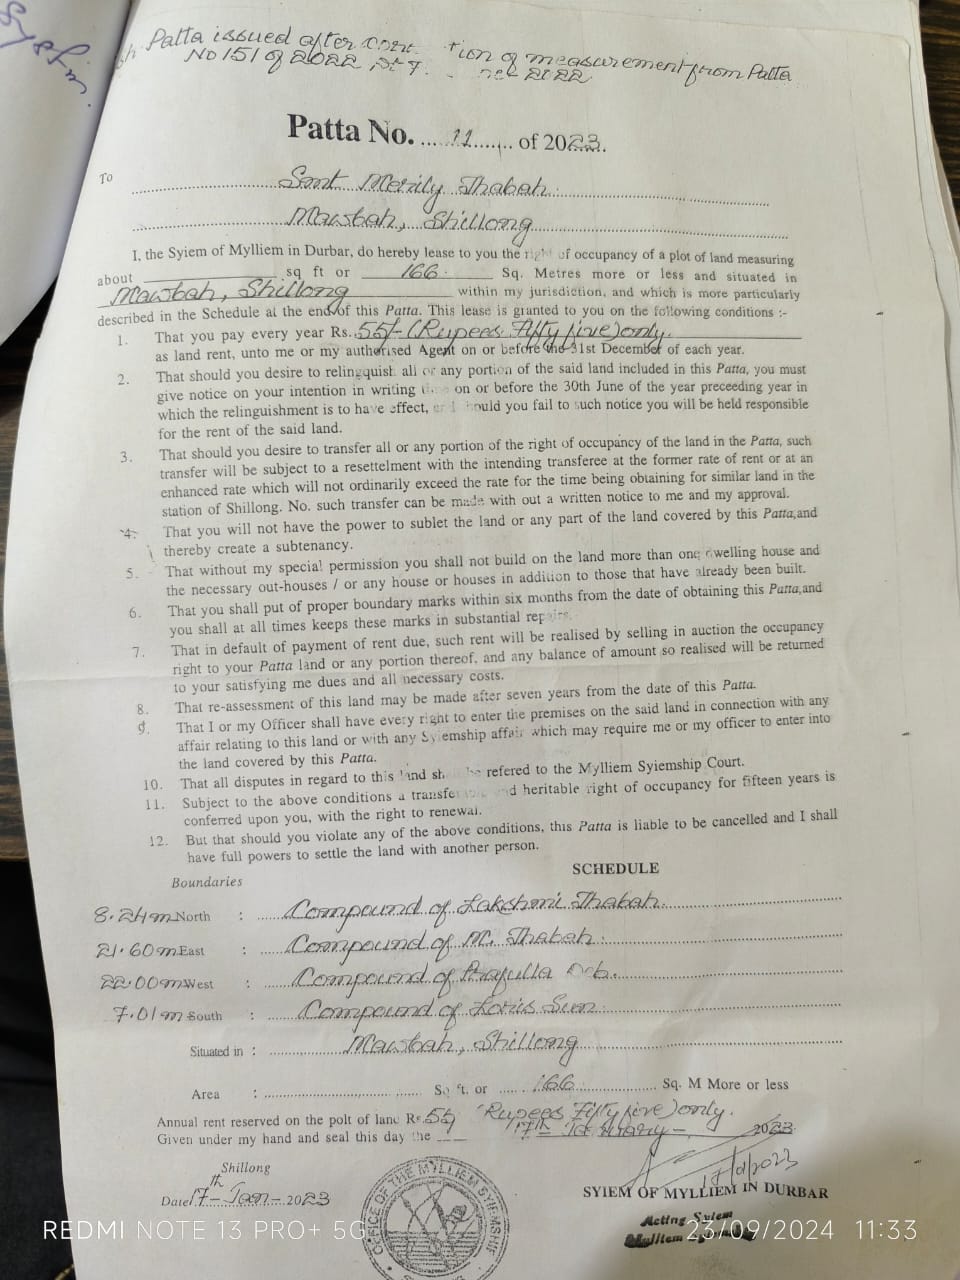 Patta issued after tion of measurement from Patta
No 151 of 2022 2022
Patta No. 11 of 2023.
To
Smt Merily Thabah.
Mawbah, Shillong
I, the Syiem of Mylliem in Durbar, do hereby lease to you the right of occupancy of a plot of land measuring
about sq ft or 166 Sq. Metres more or less and situated in
Mawbah, Shillong within my jurisdiction, and which is more particularly
described in the Schedule at the end of this Patta. This lease is granted to you on the following conditions :-
1. That you pay every year Rs. 55/- (Rupees Fifty five) only.
as land rent, unto me or my authorised Agent on or before the 31st December of each year.
2. That should you desire to relingquist all or any portion of the said land included in this Patta, you must
give notice on your intention in writing on or before the 30th June of the year preceeding year in
which the relinguishment is to have effect, should you fail to such notice you will be held responsible
for the rent of the said land.
3. That should you desire to transfer all or any portion of the right of occupancy of the land in the Patta, such
transfer will be subject to a resettelment with the intending transferee at the former rate of rent or at an
enhanced rate which will not ordinarily exceed the rate for the time being obtaining for similar land in the
station of Shillong. No. such transfer can be made with out a written notice to me and my approval.
4. That you will not have the power to sublet the land or any part of the land covered by this Patta,and
thereby create a subtenancy.
5. That without my special permission you shall not build on the land more than one dwelling house and
the necessary out-houses / or any house or houses in addition to those that have already been built.
6. That you shall put of proper boundary marks within six months from the date of obtaining this Patta,and
you shall at all times keeps these marks in substantial repairs.
7. That in default of payment of rent due, such rent will be realised by selling in auction the occupancy
right to your Patta land or any portion thereof, and any balance of amount so realised will be returned
to your satisfying me dues and all necessary costs.
8. That re-assessment of this land may be made after seven years from the date of this Patta.
9. That I or my Officer shall have every right to enter the premises on the said land in connection with any
affair relating to this land or with any Syiemship affair which may require me or my officer to enter into
the land covered by this Patta.
10. That all disputes in regard to this land be refered to the Mylliem Syiemship Court.
11. Subject to the above conditions a and heritable right of occupancy for fifteen years is
conferred upon you, with the right to renewal.
12. But that should you violate any of the above conditions, this Patta is liable to be cancelled and I shall
have full powers to settle the land with another person.
SCHEDULE
Boundaries
8.24m North : Compound of Lakshmi Thabah.
21.60m East : Compound of M. Thabah.
22.00m West : Compound of Prafulla Deb.
7.01m South : Compound of
Situated in : Mawbah, Shillong
Area : Sq ft. or 166 Sq. M More or less
Annual rent reserved on the polt of land Rs 55 (Rupees Fifty five) only.
Given under my hand and seal this day the 17th January - 2023
Shillong
17/01/2023
Date 17th - Jan - 2023
SYIEM OF MYLLIEM IN DURBAR
Acting Syiem
Mylliem
OFFICE OF THE MYLLIEM SYIEMSHIP
REDMI NOTE 13 PRO+ 5G
23/09/2024 11:33